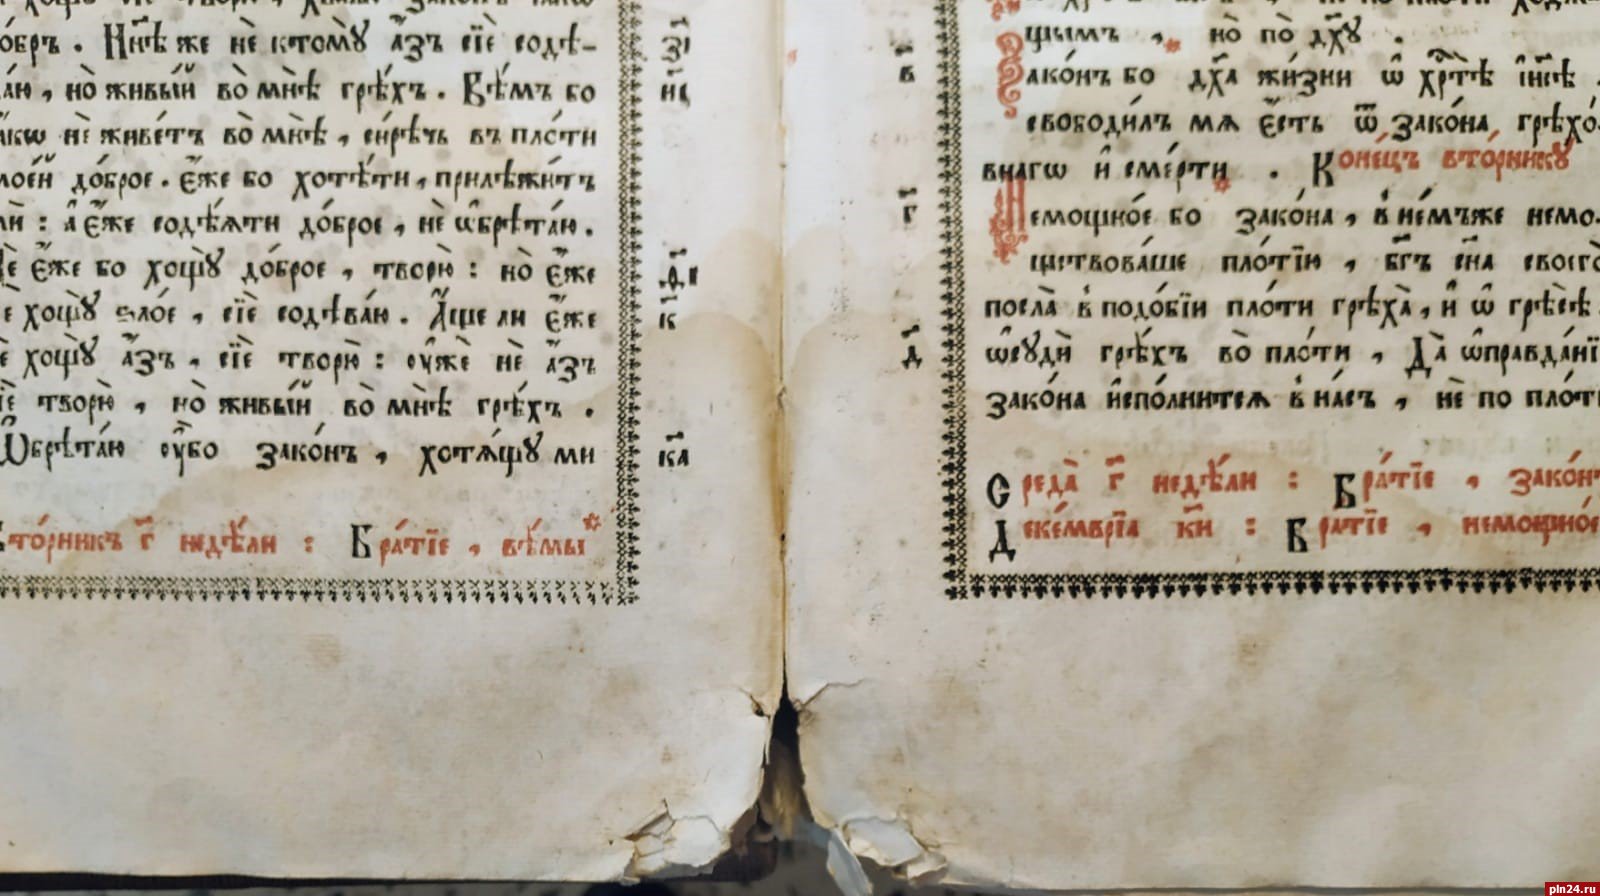 добръ . Нн҃ѣ же нѐ ктомꙋ̀ а҆́зъ сїѐ содѣ-
ваю , но̀ живы́й во̀ мнѣ̀ грѣ́хъ . Вѣ́мъ бо
ꙗ҆́кѡ нѐ живе́тъ во̀ мнѣ̀ , си́рѣчь въ пло́ти
мое́й до́брое . є҆́же бо хотѣ́ти , прилѣжи́тъ
мѝ : а҆ є҆́же содѣ́ѧти до́брое , нѐ ѡ҆брѣта́ю .
Нѐ є҆́же бо хощꙋ̀ до́брое , творю̀ : но̀ є҆́же
нѐ хощꙋ̀ ѕло́е , сїѐ содѣва́ю . А҆́ще ли є҆́же
нѐ хощꙋ̀ а҆́зъ , сїѐ творю̀ : ᲂу҆жѐ нѐ а҆́зъ
сїѐ творю̀ , но̀ живы́й во̀ мнѣ̀ грѣ́хъ .
Ѡ҆брѣта́ю ᲂу҆̀бо зако́нъ , хотѧ́щꙋ ми
Вто́рникъ г҃ недѣ́ли : Бра́тїе , вѣ́мы*
з҃і
и҃і
ѳ҃і
к҃
к҃а
щымъ , но̀ по̀ дх҃ꙋ .
Зако́нъ бо дх҃а жи́зни ѡ҆ хр҇тѣ̀ і҆и҃сѣ .
свободи́лъ мѧ є҆́сть ѿ зако́на грѣхо-
внагѡ и҆ сме́рти . Коне́цъ вто́рникꙋ
Немощно́е бо зако́на , в не́мъже немо-
ществова́ше пло́тїю , бг҃ъ сн҃а своего̀
посла̀ в подо́бїи пло́ти грѣха̀ , и҆ ѡ҆ грѣсѣ̀
ѡ҆сꙋдѝ грѣ́хъ во̀ пло́ти , Да̀ ѡ҆правда́нї
зако́на и҆спо́лнитсѧ в на́съ , нѐ по пло́ти
Среда̀ г҃ недѣ́ли : Бра́тїе , зако́нъ
Деке́мврїа к҃и : Бра́тїе , немощно́е
в҃
г҃
д҃
pln24.ru